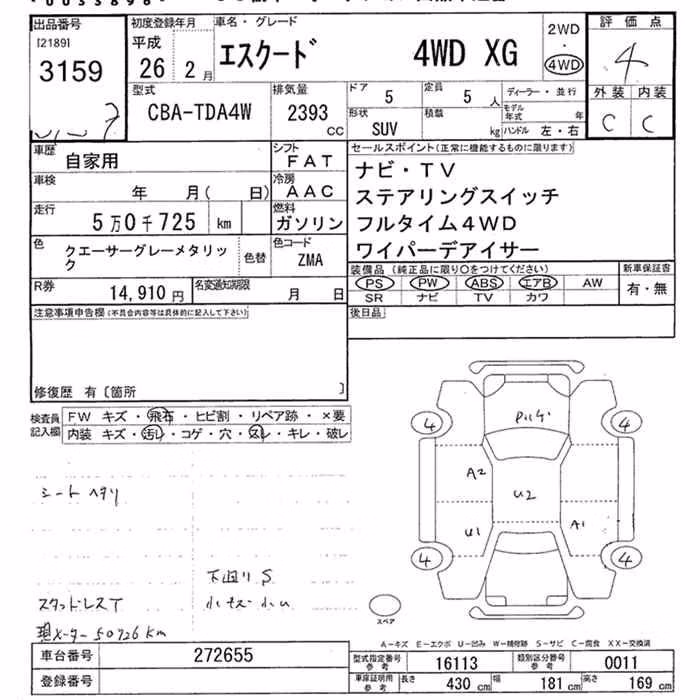 出品番号
[2189]
3159
初度登録年月
平成
26 2 月
車名・グレード
エスクード 4WD XG
2WD
・
4WD
評価点
4
外装 内装
C C
型式
CBA-TDA4W
排気量
2393
CC
ドア
5
定員
5 人
形状
SUV
積載
kg
ディーラー・並行
モデル年式 年
ハンドル 左・右
車歴
自家用
シフト
FAT
車検
年 月( 日)
冷房
AAC
走行
5万0千725 km
燃料
ガソリン
色
クエーサーグレーメタリック
色替
色コード
ZMA
R券
14,910 円
名変通知期限
月 日
セールスポイント(正常に機能するものに限ります)
ナビ・TV
ステアリングスイッチ
フルタイム4WD
ワイパーデアイサー
装備品 (純正品に限り○をつけてください)
PS PW ABS エアB AW
SR ナビ TV カワ
新車保証書
有・無
注意事項申告欄(不具合内容等は具体的に記入して下さい)
後日品
修復歴 有〔箇所 〕
検査員記入欄
FW キズ・飛石・ヒビ割・リペア跡・×要
内装 キズ・汚レ・コゲ・穴・スレ・キレ・破レ
シートヘタリ
下廻りS
スタッドレスT
現メーター50726km
4
4
A2
U2
U1
A1
4
4
スペア
A-キズ E-エクボ U-凹み W-補修跡 S-サビ C-腐食 XX-交換済
車台番号 272655
登録番号
型式指定番号 参考 16113
類別区分番号 参考 0011
車庫証明用 参考 長さ 430 cm 幅 181 cm 高さ 169 cm